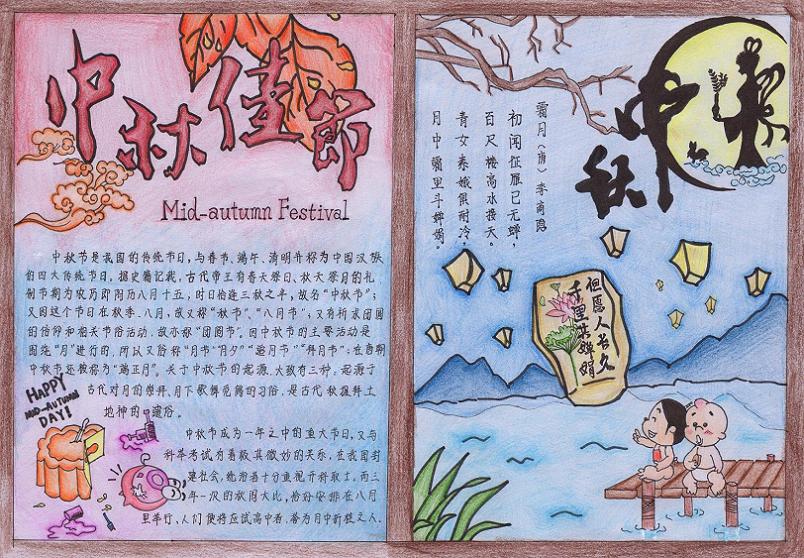 中秋佳節
Mid-autumn Festival
中秋节是我国的传统节日,与春节、端午、清明并称为中国汉族
的四大传统节日,据史籍记载,古代帝王有春天祭日、秋天祭月的礼
制节期为农历即阴历八月十五,时日恰逢三秋之半,故名“中秋节”;
又因这个节日在秋季、八月,故又称“秋节”、“八月节”;又有祈求团圆
的信仰和相关节俗活动,故亦称“团圆节”。因中秋节的主要活动是
围绕“月”进行的,所以又俗称“月节”“月夕”“追月节”“拜月节”;在唐朝
中秋节还被称为“端正月”。关于中秋节的起源,大致有三种,起源于
古代对月的崇拜、月下歌舞觅偶的习俗,是古代秋报拜土
地神的遗俗。
HAPPY
MID-AUTUMN
DAY!
中秋节成为一年之中的重大节日,又与
科举考试有着极其微妙的关系,在我国封
建社会,统治者十分重视,而三
年一次的秋闱大比,恰好安排在八月
里举行,人们便将应试高中者,誉为月中折桂之人。
中秋
霜月(唐)李商隐
初闻征雁已无蝉,
百尺楼高水接天。
青女素娥俱耐冷,
月中霜里斗婵娟。
但愿人长久
千里共婵娟